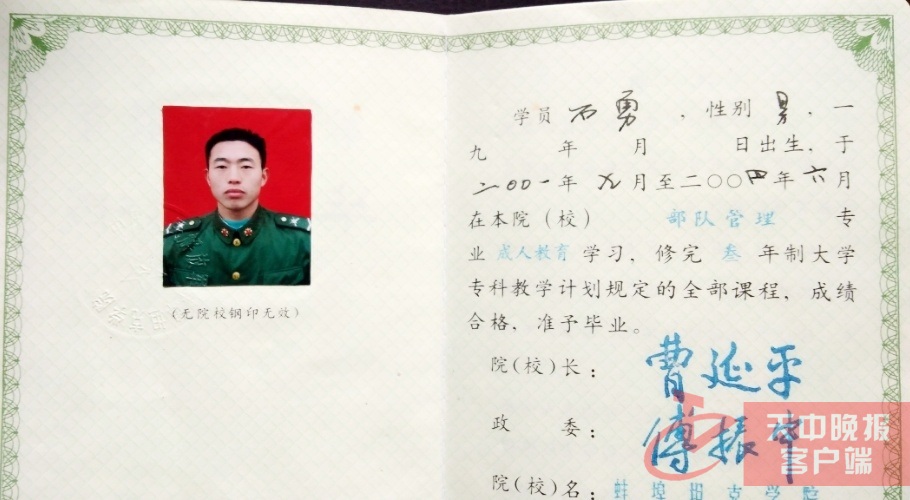 (无院校钢印无效)
学员 石勇 ，性别 男 ，一
九 年 月 日出生，于
二00一年 九月至二〇〇四年六月
在本院（校） 部队管理 专
业 成人教育 学习，修完 叁 年制大学
专科教学计划规定的全部课程，成绩
合格，准予毕业。
院(校)长： 曹延平
政 委： 傅振中
院(校)名： 蚌埠坦克学院
天中晚报
客户端